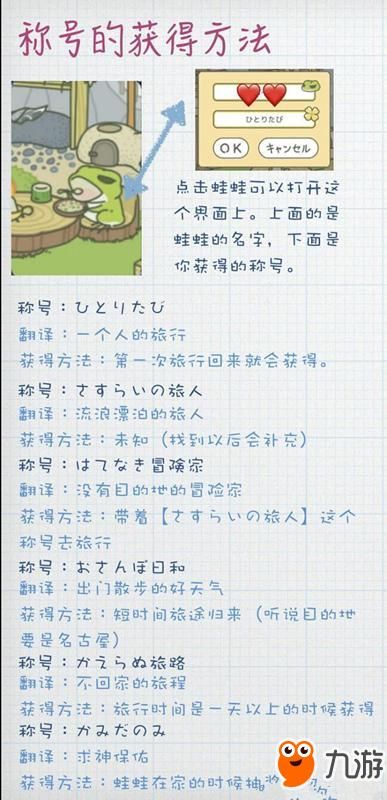 称号的获得方法
ひとりたび
OK
キャンセル
点击蛙蛙可以打开这
个界面上。上面的是
蛙蛙的名字，下面是
你获得的称号。
称号：ひとりたび
翻译：一个人的旅行
获得方法：第一次旅行回来就会获得。
称号：さすらいの旅人
翻译：流浪漂泊的旅人
获得方法：未知（找到以后会补充）
称号：はてなき冒険家
翻译：没有目的地的冒险家
获得方法：带着【さすらいの旅人】这个
称号去旅行
称号：おさんぽ日和
翻译：出门散步的好天气
获得方法：短时间旅途归来（听说目的地
要是名古屋）
称号：かえらぬ旅路
翻译：不回家的旅程
获得方法：旅行时间是一天以上的时候获得
称号：かみだのみ
翻译：求神保佑
获得方法：蛙蛙在家的时候抽奖
九游